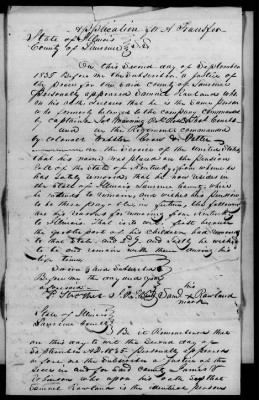 Application for A Transfer
State of Illinois
County of
On this Second day of September
1835 Before me the Subscriber, a Justice of
the Peace for the Said County of
personally appeared Samuel Rowland who
on his oath Declares that he is the Same person
who formerly belonged to the company commanded
by Captain
and in the Regiment commanded
by colonel
in the Service of the United States
that his name was placed on the pension
roll of the State of Kentucky from whence he
has lately removed that he now resides in
the State of Illinois County where
he intends to remain, and wishes his pension
to be there payable in future, the following
are his reasons for removing from Kentucky
to Illinois that is to say first because
the greater part of his children had removed
to that State, and Lastly he wishes
to be and remain with them during his
life time
Sworn and Subscribed
Before me the day and year
aforesaid his
Samuel X Rowland
mark
State of Illinois
County
Be it Remembered that
on this day to wit the Second day of
September A.D. 1835 personally appeared
before me the Subscriber a Justice of the
Peace in and for Said County James
Johnson who upon his oath Says that
Samuel Rowland is the identical person